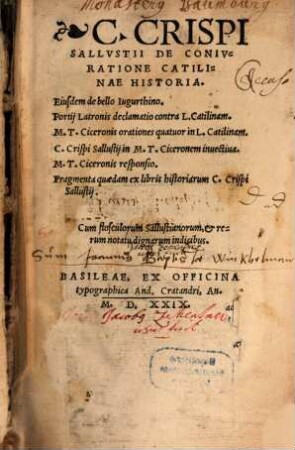 Monastery Baumburg
C. CRISPI
SALLVSTII DE CONIV-
RATIONE CATILI-
NAE HISTORIA.
Eiusdem de bello Iugurthino.
Portij Latronis declamatio contra L. Catilinam.
M. T. Ciceronis orationes quatuor in L. Catilinam.
C. Crispi Sallustij in M. T. Ciceronem inuectiua.
M. T. Ciceronis responsio.
Fragmenta quædam ex libris historiarum C. Crispi
Sallustij.
Cum flosculorum Sallustianorum, & re-
rum notatu dignarum indicibus.
Sum Joannis
BASILEAE, EX OFFICINA
typographica And. Cratandri, An.
M. D. XXIX.